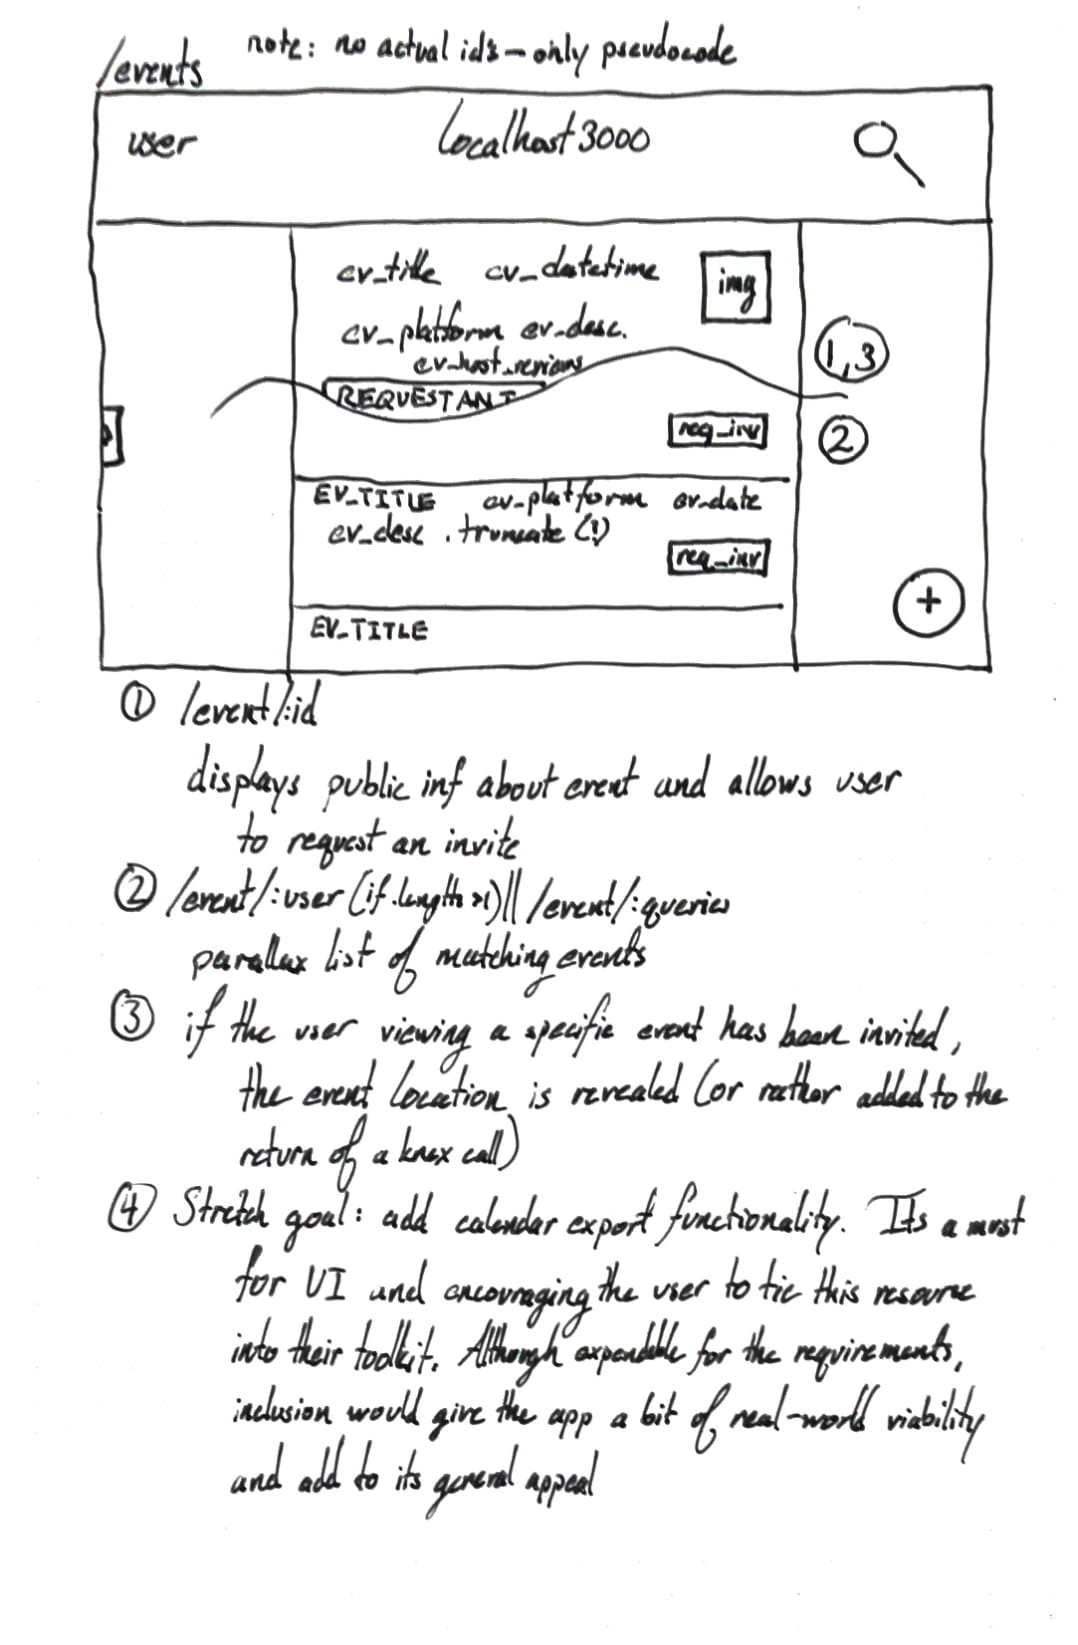 /events note: no actual id's - only pseudocode
user localhost 3000
ev_title ev_datetime img
ev_platform ev_desc.
1,3
REQUEST AN I
req_inv 2
EV_TITLE ev_platform ev_date
ev_desc . truncate (!)
req_inv
+
EV_TITLE
① /event/:id
displays public inf about event and allows user
to request an invite
② /event/:user (if .length >1) || /event/:queries
parallax list of matching events
③ if the user viewing a specific event has been invited,
the event location is revealed (or rather added to the
return of a knex call)
④ Stretch goal: add calendar export functionality. Its a must
for UI and encouraging the user to tie this resource
into their toolkit. Although expendable for the requirements,
inclusion would give the app a bit of real-world viability
and add to its general appeal